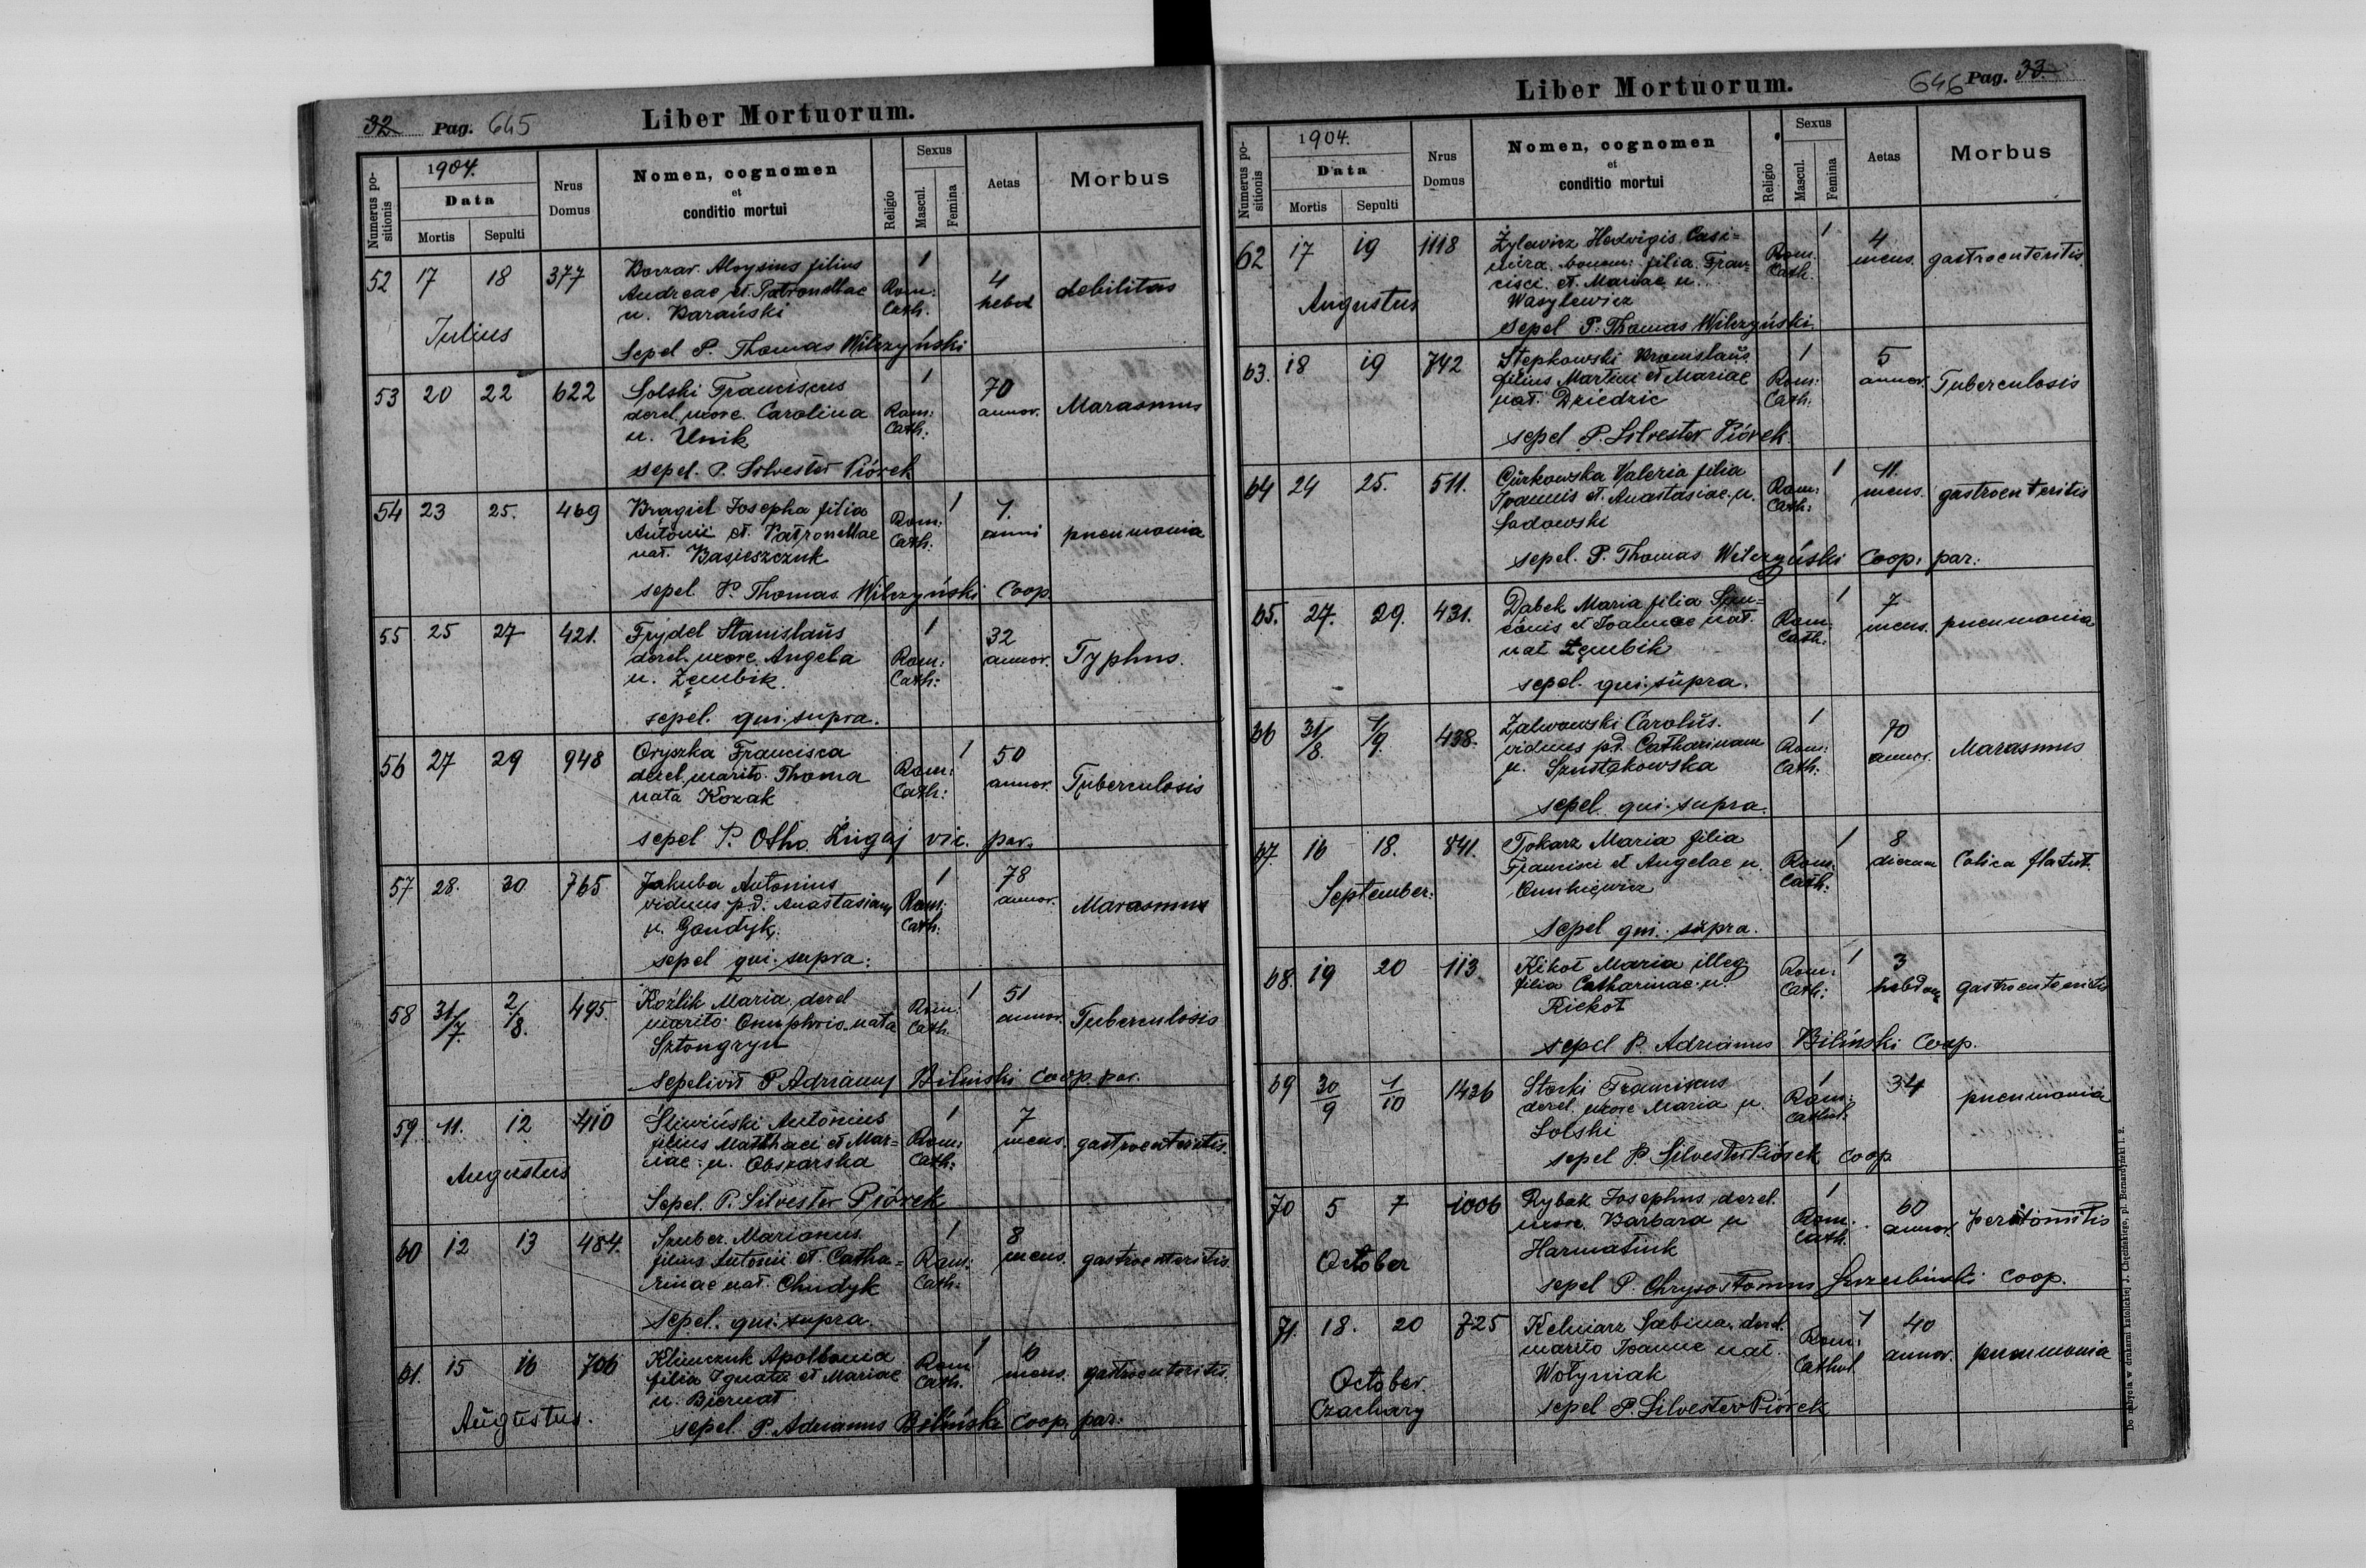 32 Pag. 645
Liber Mortuorum.
Numerus positionis
1904.
Data
Mortis Sepulti
Nrus Domus
Nomen, cognomen
et
conditio mortui
Religio
Sexus
Mascul. Femina
Aetas
Morbus
52 17 18 377 Aloysius filius Rom: Cath. 1 4 hebd debilitas
Andreae et Petronellae
n. Barański
Julius
Sepel P. Thomas Wilczyński
53 20 22 622 Solski Franciscus Rom: Cath: 1 70 annor. Marasmus
derel. uxore Carolina
n. Unik
sepel. P. Silvester Piórek
54 23 25. 469 Bragiel Josepha filia Rom: Cath: 1 1. anni pneumonia
Antonii et Petronellae
nat. Basieszczuk
sepel P. Thomas Wilczyński Coop
55 25 27 421. Frydel Stanislaus Rom: Cath: 1 32 annor. Typhus.
derel. uxore Angela
n. Zembik
sepel. qui supra.
56 27 29 948 Oryszka Francisca Rom: Cath: 1 50 annor. Tuberculosis
derel. marito Thoma
nata Kozak
sepel P. Otho vic. par.
57 28. 30 765 Jakuba Antonius Rom: Cath: 1 78 annor. Marasmus
viduus p.d. Anastasiam
n. Gondyk.
sepel qui supra:
58 31/7. 2/8. 495. Koźlik Maria derel Rom: Cath. 1 51 annor. Tuberculosis
marito Onuphrio nata
Sztongryn
sepelivit P Adrianus Biliński Coop. par.
59. 11. 12 410 Śliwiński Antonius Rom: Cath: 1 7 mens. gastroenteritis.
filius Matthaei et Mariae
n. Obszarska
Augustus
Sepel. P. Silvester Piórek
60 12 13 484. Szuber Marianus Rom: Cath: 1 8 mens. gastroenteritis.
filius Antonii et Catharinae
nat. Chudyk
sepel. qui supra.
61. 15 16 706 Klimczuk Apollonia Rom Cath. 1 6 mens. gastroenteritis.
filia Ignatii et Mariae
n. Biernat
Augustus.
sepel P. Adrianus Biliński Coop. par.
Liber Mortuorum.
646 Pag. 33.
Numerus positionis
1904.
Data
Mortis Sepulti
Nrus Domus
Nomen, cognomen
et
conditio mortui
Religio
Sexus
Mascul. Femina
Aetas
Morbus
62 17 19 1118 Żylewicz Hedvigis Casi= Rom. Cath. 1 4 mens. gastroenteritis.
mira filia Fran=
cisci et Mariae n.
Wasylewicz
Augustus
sepel P. Thomas Wilczyński
63. 18 19 742 Stępkowski Bronislaus Rom: Cath: 1 5 annor. Tuberculosis
filius Martini et Mariae
nat. Dziedzic
sepel P. Silvester Piórek
64 24 25. 511. Curkowska Valeria filia Rom: Cath: 1 11. mens. gastroenteritis
Joannis et Anastasiae n.
Sadowski
sepel. P. Thomas Wilczyński Coop. par:
65. 27. 29. 431. Dąbek Maria filia Sym= Rom: Cath: 1 7 mens. pneumonia
eonis et Joannae nat.
nat Zembik
sepel. qui supra.
66 31/8. 1/9. 438. Zalwowski Carolus. Rom: Cath: 1 70 annor. Marasmus
viduus p.d. Catharinam
n. Szustakowska
sepel qui supra.
67. 16 18. 841. Tokarz Maria filia Rom: Cath: 1 8 dierum Colica flatul.
Francisci et Angelae n.
September:
sepel qui supra.
68. 19 20 113 Kikot Maria illeg. Rom: Cath: 1 3 hebdom gastroenteritis
filia Catharinae n.
Kiekot
sepel P. Adrianus Biliński Coop.
69 30/9 1/10 1436 Storki Franciscus Rom: Cathol. 1 34 pneumonia
derel uxore Maria n.
Solski
sepel P. Silvester Piórek Coop
70 5 7 1006 Rybak Josephus derel. Rom. Cath. 1 60 annor. peritonitis
uxore Barbara n
Harmatiuk
October
sepel P. Chrysostomus coop.
71. 18. 20 725 Kelniarz Sabina derel. Rom: Cathol. 1 40 annor. pneumonia
marito Joanne nat.
Wołyniak
October.
Czachary
sepel P. Silvester Piórek
Do nabycia w drukarni katolickiej J. Chęcińskiego, pl. Bernardyński l. 2.